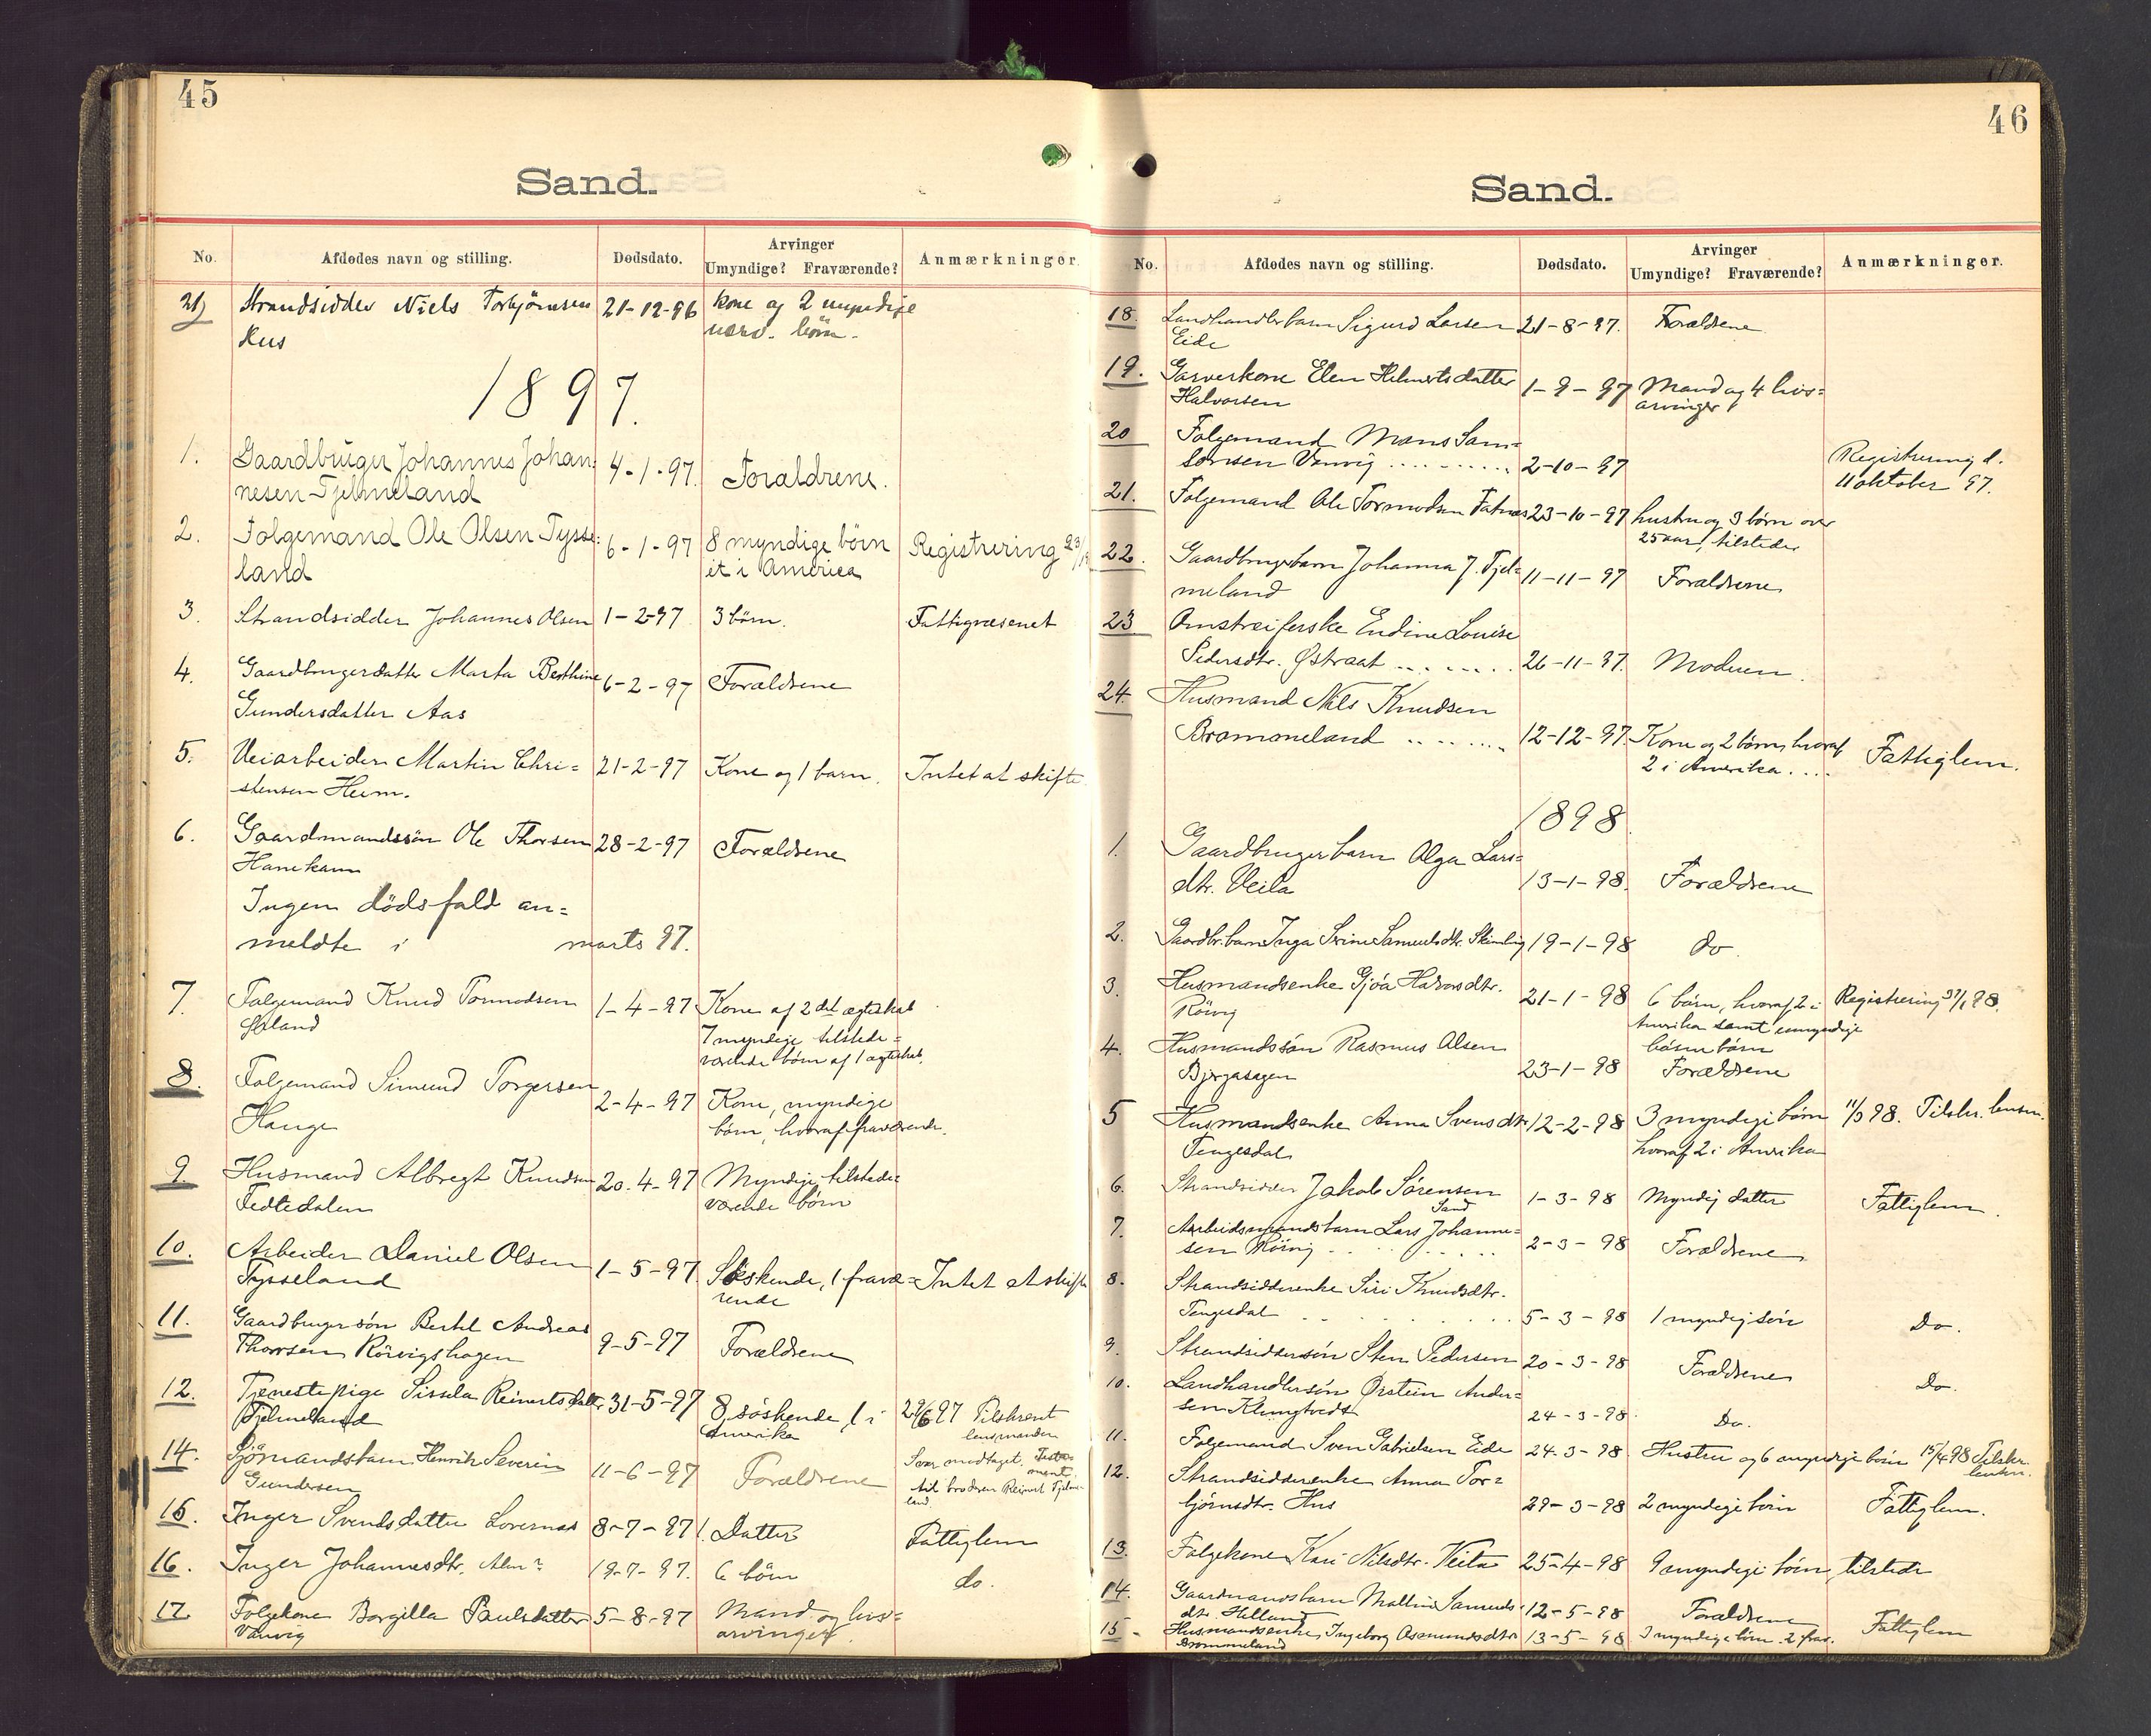 45
Sand.
No. Afdødes navn og stilling. Dødsdato. Arvinger Umyndige? Fraværende? Anmærkninger.
21) Strandsidder Niels Torbjörnsen 21-12-96 kone og 2 myndige
Hus nærv. börn.
1897.
1. Gaardbruger Johannes Johan- 4-1-97. Forældrene.
nesen Tjelmeland
2. Folgemand Ole Olsen Tysse- 6-1-97 8 myndige börn Registrering
land et i America
3. Strandsidder Johannes Olsen 1-2-97 3 börn. Fattigvæsenet
4. Gaardbrugerdatter Marta Berthine 6-2-97 Forældrene
Gundersdatter Aas
5. Veiarbeider Martin Chri= 21-2-97 Kone og 1 barn. Intet at skifte
stensen Heim.
6. Gaardmandssön Ole Thorsen 28-2-97 Forældrene
Hanekam
Ingen dödsfald an=
meldte i marts 97.
7. Folgemand Knud Tormodsen 1-4-97 Kone af 2det ægteskab
7 myndige tilstede=
værende börn af 1 ægteskab.
8. Folgemand Simund Torgersen 2-4-97 Kone, myndige
Hauge börn, hvoraf fraværende.
9. Husmand Albregt Knudsen 20.4-97 Myndige tilstede=
Fedtedalen værende börn
10. Arbeider Daniel Olsen 1-5-97 Söskende, 1 fravæ= Intet at skifte
Tysseland rende
11. Gaardbrugersön Bertel Andreas 9-5-97 Forældrene
Thorsen Rörvigshagen
12. Tjenestepige Sissela Reinertsdatter 31-5-97 8 söskende, 1 i 29/6 97 Tilskrevet
Tjelmeland Amerika lensmanden
14. Sjömandsbarn Henrik Severin 11-6-97 Forældrene Svar modtaget. Testa-
Gundersen ment
til broderen Reinert Tjelme-
land.
15. Inger Svendsdatter Lovernes 8-7-97 1 Datter Fattiglem
16. Inger Johannesdtr. 19-7-97. 6 börn do.
17. Folgekone Borgilla Paulsdatter 5-8-97 Mand og livs=
Vanvig arvinger.
46
Sand.
No. Afdødes navn og stilling. Dødsdato. Arvinger Umyndige? Fraværende? Anmærkninger.
18. Landhandlerbarn Sigurd Larsen 21-8-97. Forældrene
Eide
19. Garverkone Elen Helmertsdatter 1-9-97 Mand og 4 livs=
Halvorsen arvinger
20 Folgemand Mons Sam=
sonsen Vanvig .......... 2-10-97 Registrering d.
11 oktober 97.
21. Folgemand Ole Tormodsen Fatnes 23-10-97 hustru og 3 börn over
25 aar, tilstede
22. Gaardbrugerbarn Johanna J. Tjel= 11-11-97 Forældrene
meland
23 Omstreiferske Endine Louise
Pedersdtr. Østraat ....... 26-11-97. Moderen.
24. Husmand Nils Knudsen
Brommeland ....... 12-12-97. Kone og 2 börn, hvoraf Fattiglem.
2 i Amerika ....
1898.
1. Gaardbrugerbarn Olga Lars=
dtr. Veila 13-1-98. Forældrene
2. Gaardbr.barn Inga Serine Samuelsdtr. 19-1-98 do.
3. Husmandsenke Gjöa Halvorsdtr. 21-1-98 6 börn, hvoraf 2 i Registrering 31/1 98.
Rörvig Amerika samt umyndige
börnebörn
4. Husmandssön Rasmus Olsen 23-1-98 Forældrene
5 Husmandsenke Anna Svensdtr 12-2-98 3 myndige börn 11/3 98. Tilskr. lensm.
Tengesdal hvoraf 2 i Amerika
6. Strandsidder Jakob Sörensen 1-3-98 Myndig datter Fattiglem.
Sand
7. Arbeidsmandsbarn Lars Johanne=
sen Rörvig ....... 2-3-98 Forældrene
8. Strandsidderenke Siri Knudsdtr.
Tengesdal ....... 5-3-98 1 myndig sön Do.
9. Strandsiddersön Sten Pedersen 20-3-98 Forældrene Do.
10. Landhandlersön Ørstein Ander=
sen Klungtvedt 24-3-98. Do.
11. Folgemand Sven Gabrielsen Eide 24-3-98 Hustru og 6 myndige börn 15/4 98 Tilskr.
lensm.
12. Strandsidderenke Anna Tor=
björnsdtr. Hus 29-3-98 2 myndige börn Fattiglem.
13. Folgekone Kari Nilsdtr. Veila 25-4-98 9 myndige börn, tilstede
14. Gaardmandsbarn Malline Samuels- 12-5-98 Forældrene
dtr. Helland
15- Husmandsenke Ingeborg Osmundsdtr 13-5-98 3 myndige börn. 2 frav. Fattiglem
Brommeland